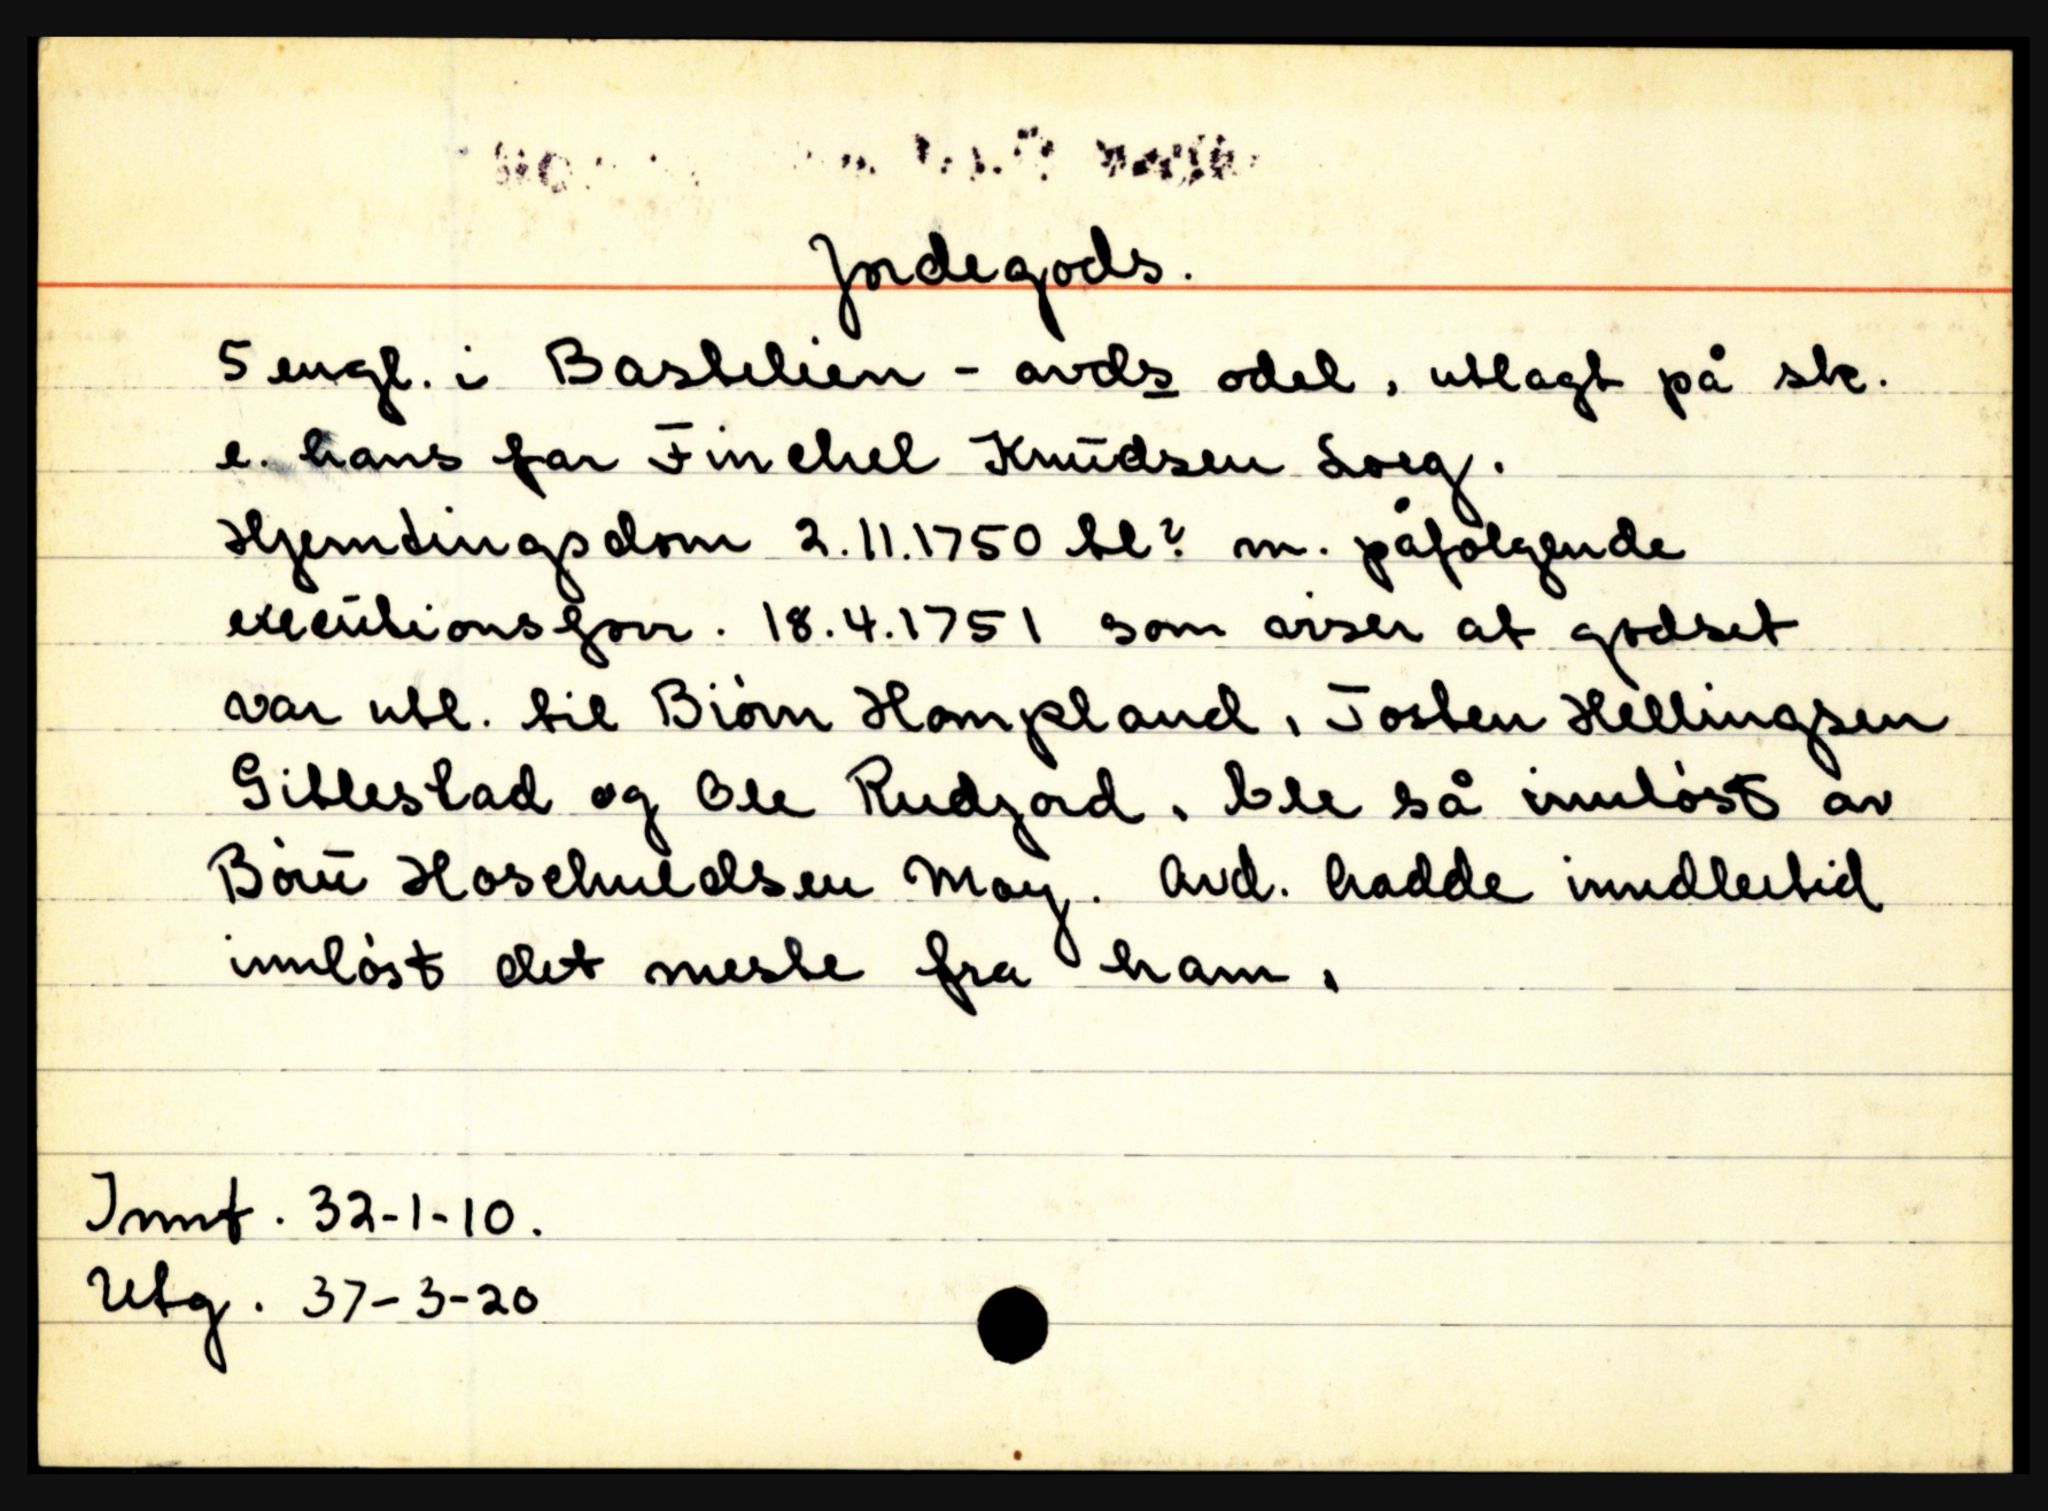 Jordegods.
5 engl. i Bastelien - avds odel, utlagt på sk.
e. hans far Finchel Knudsen Loeg.
Hjemtingsdom 2.11.1750 bl? m. påfølgende
executionsforr. 18.4.1751 som viser at godset
var utl. til Biørn Hompland, Tosten Hellingsen
Gitlestad og Ole Rudjord, ble så innløst av
Børu Hoschuldsen Moy. Avd. hadde imidlertid
innløst det meste fra ham.
Innt. 32-1-10.
Utg. 37-3-20